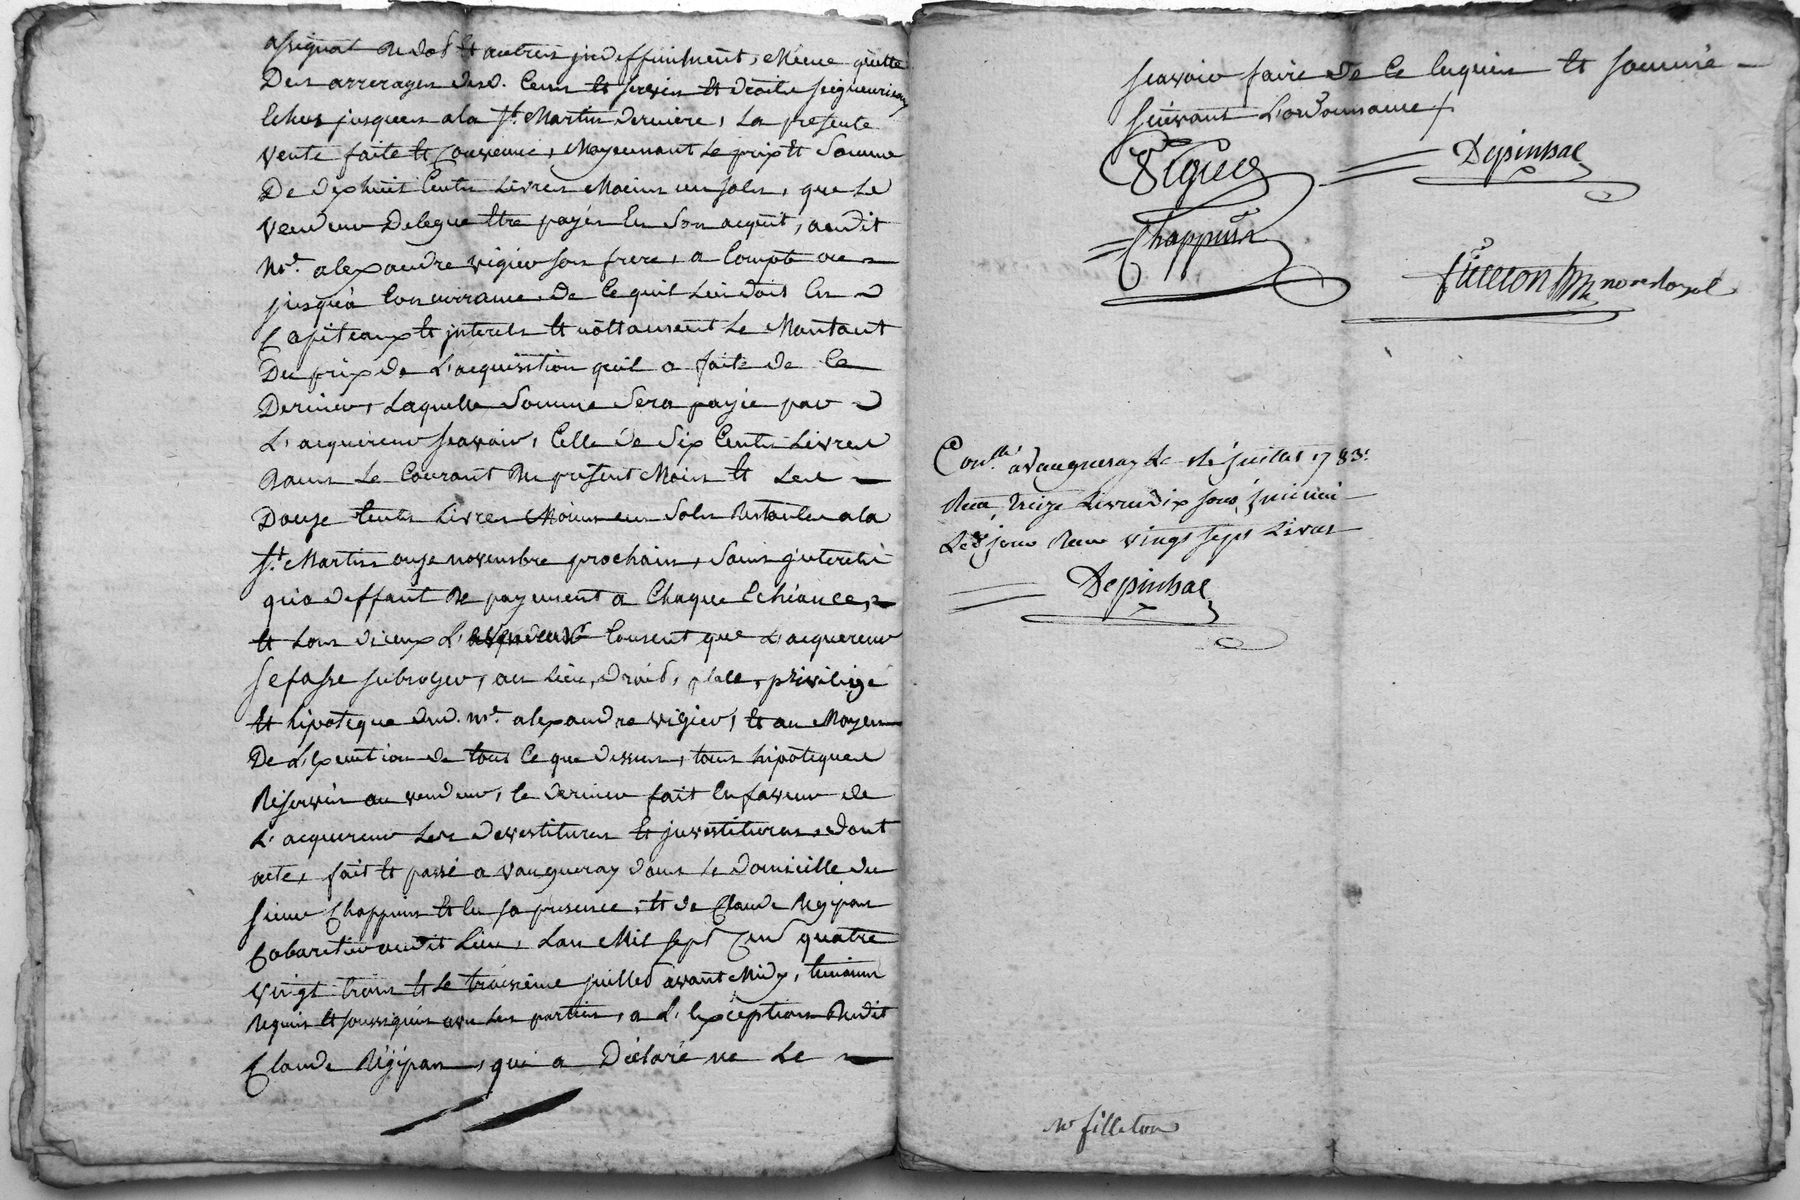 assignat de dot et autres jndeffiniment, même quitte
Des arrerages desd. Cens et servis et droits seigneuriaux
Echus jusques a la St. Martin derniere, La presente
vente faite et Convenue, Moyennant Le prix et Somme
De dix huit Cents Livres Moins un sols, que Le
vendeur Delegue Etre payés En Son acquit, audit
Me. alexandre vigier son frere, a Compte ou
jusqu'a Concurrance de Ce quil Lui doit En
Capiteaux et jnterets et nôttament Le Montant
Du prix de L'acquisition quil a faite de Ce
Dernier, Laquelle Somme Sera payée par
L'acquereur scavoir, Celle de Six Cents Livres
Dans Le Courant du présent Mois et Les
Douze Cents Livres Moins un Sols Restantes a la
St. Martin onze novembre prochain, Sans jnterets
qu'a deffaut de payement a Chaque Echéance,
et Lors d'iceux Le vendeur Consent que L'acquereur
Se fasse subroger, au Lieu, Droits, place, privilége
et hipoteque dud. Me. alexandre vigier, et au Moyen
De L'Execution de tout Ce que dessus, tous hipoteques
Réservés au vendeur, Ce dernier fait En faveur de
L'acquereur Les devestitures et jnvestitures, dont
acte, fait et passé a vaugneray dans Le Domicille du
sieur Chappuis et En sa presence, et de Claude Régipas
Cabaretier audit Lieu, L'an Mil Sept Cent quatre
vingt trois et Le troisiême juillet avant Midy, temoins
Requis et soussignés avec Les parties, a L'Exception Dudit
Claude Régipas, qui a Déclaré ne Le
scavoir faire de Ce Enquis et sommé
suivant L'ordonnance /.
Vigier
Depinhac
Chappuis
filleton nore royal
Conllé a Vaugneray Le juillet 1783.
Reçu treize Livres dix sous,
Led. jour Reçu vingt sept Livres
Depinhac
Me filleton